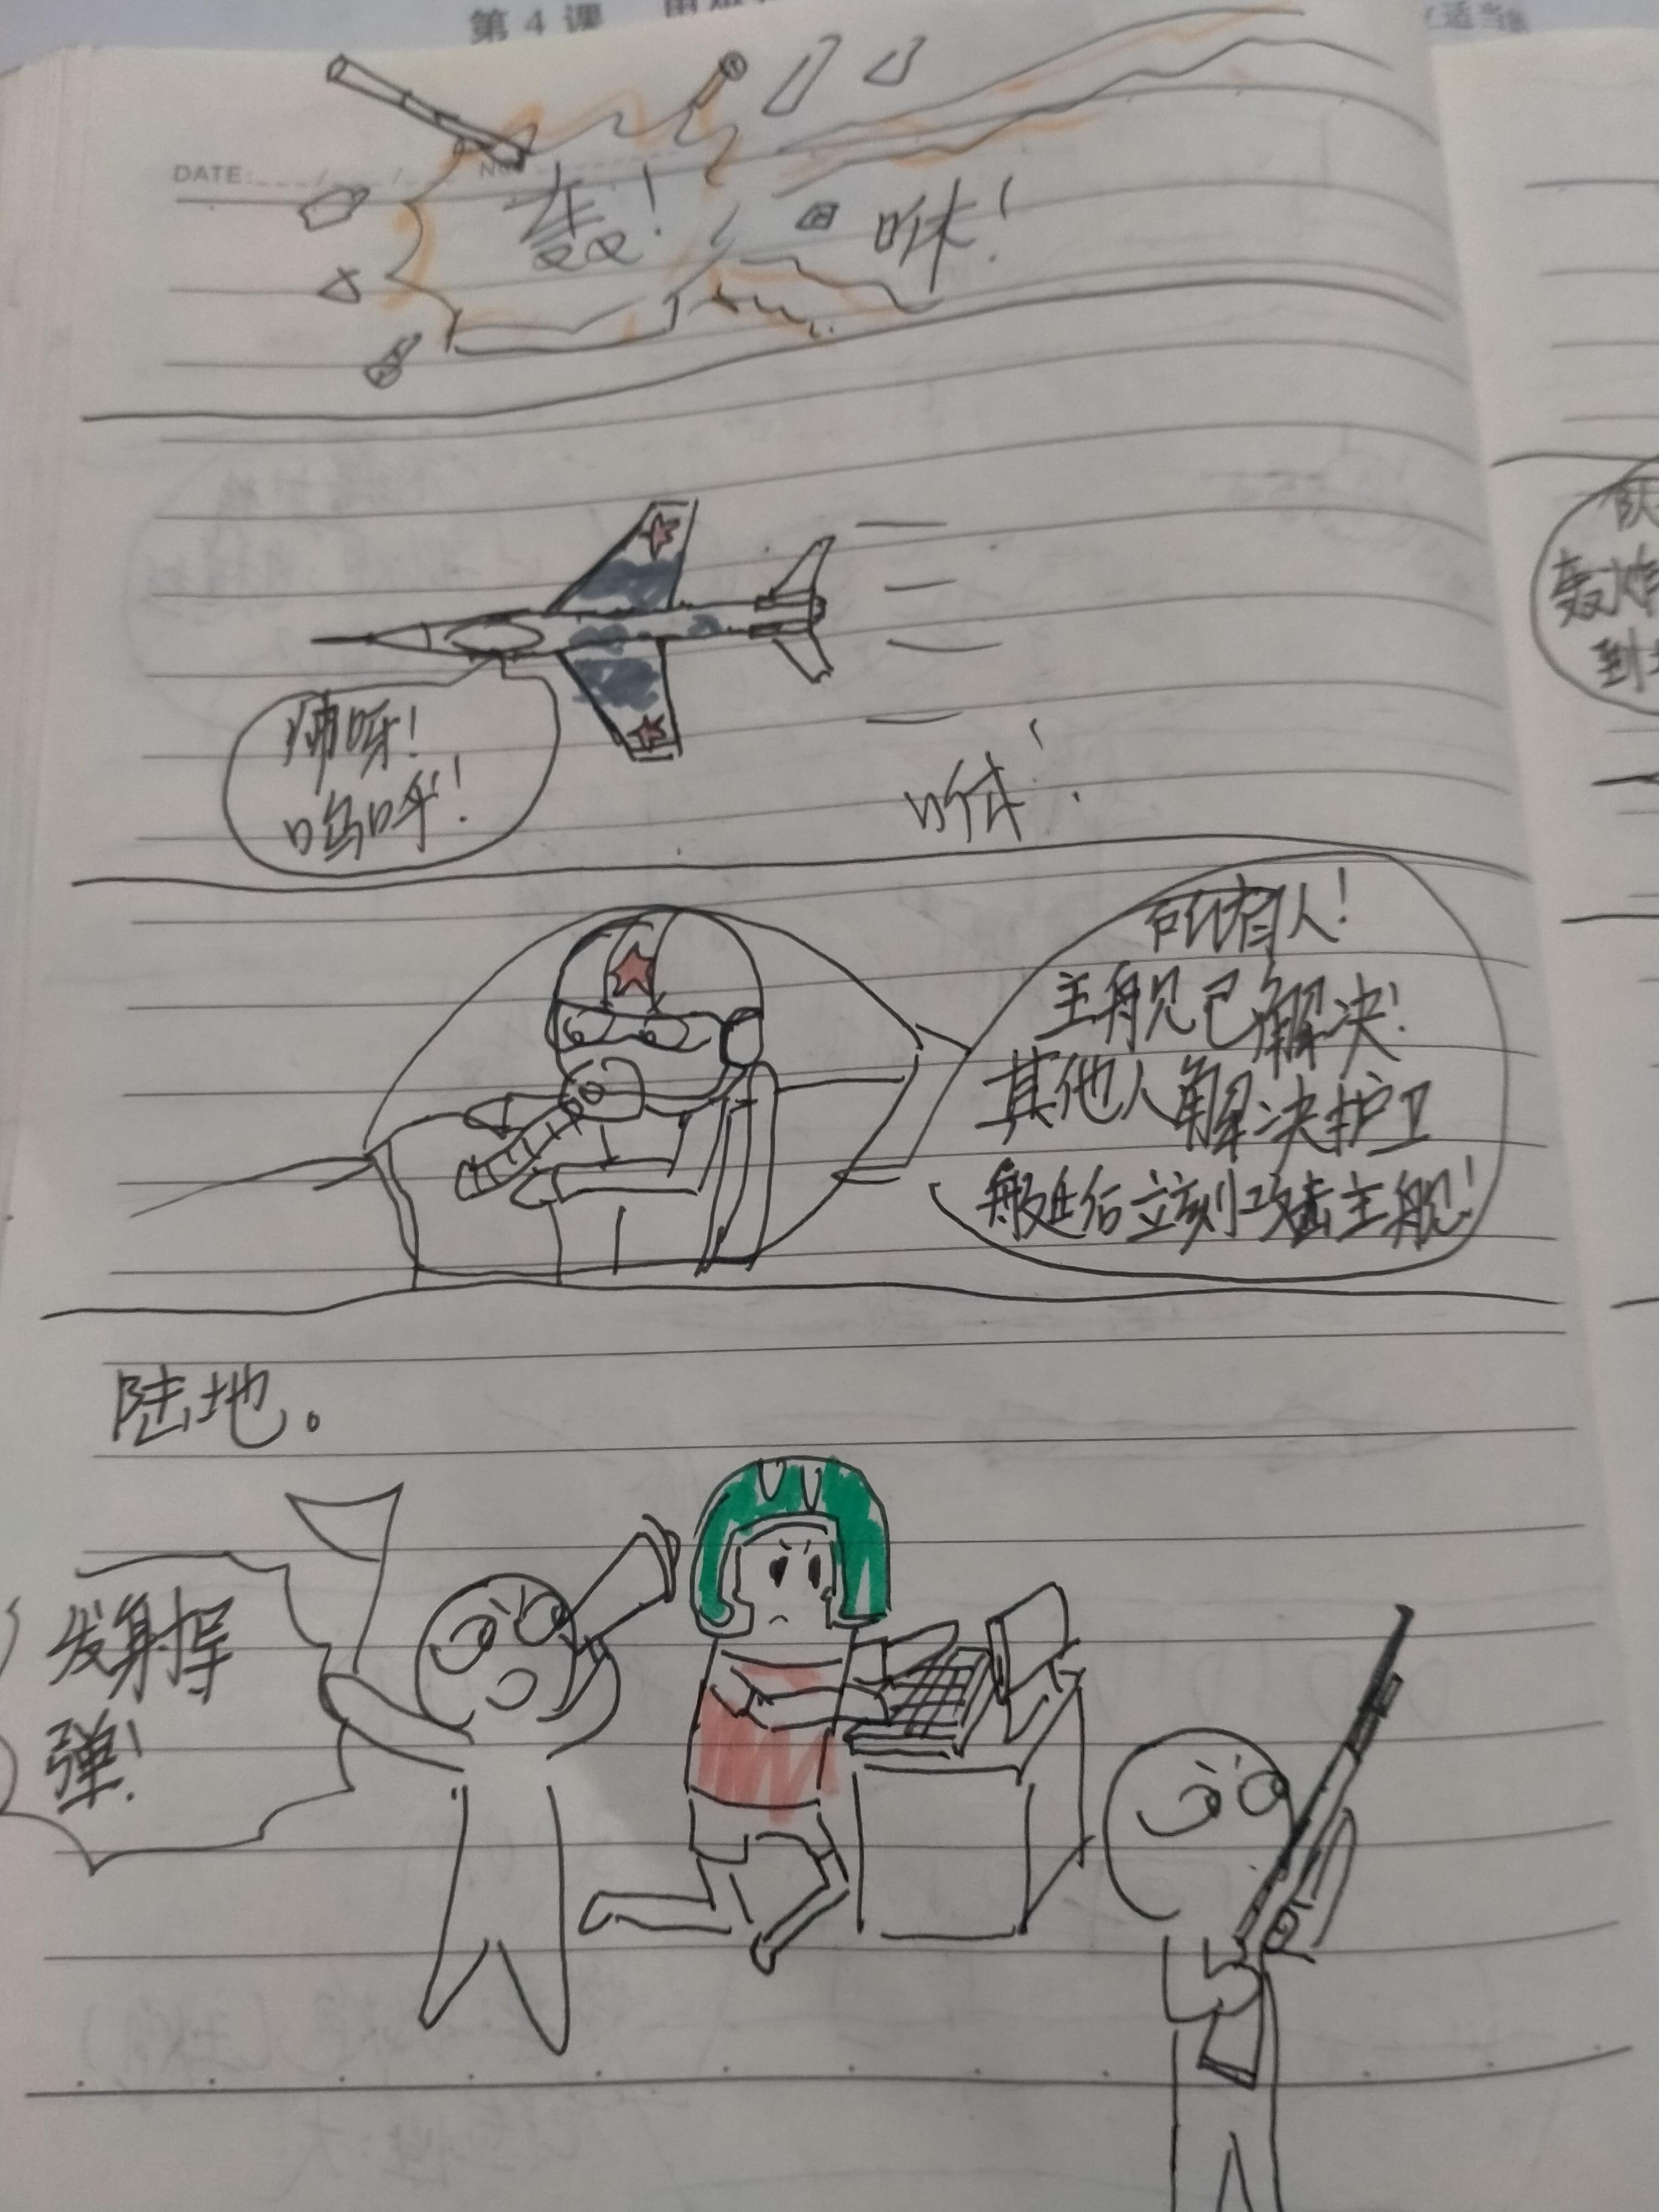 第 4 课
适当
DATE: / / No
轰！
咻！
帅呀！
呜呼！
咻！
所有人！
主舰已解决！
其他人解决护卫
舰艇后立刻攻击主舰！
队
轰炸
到
陆地。
发射导
弹！